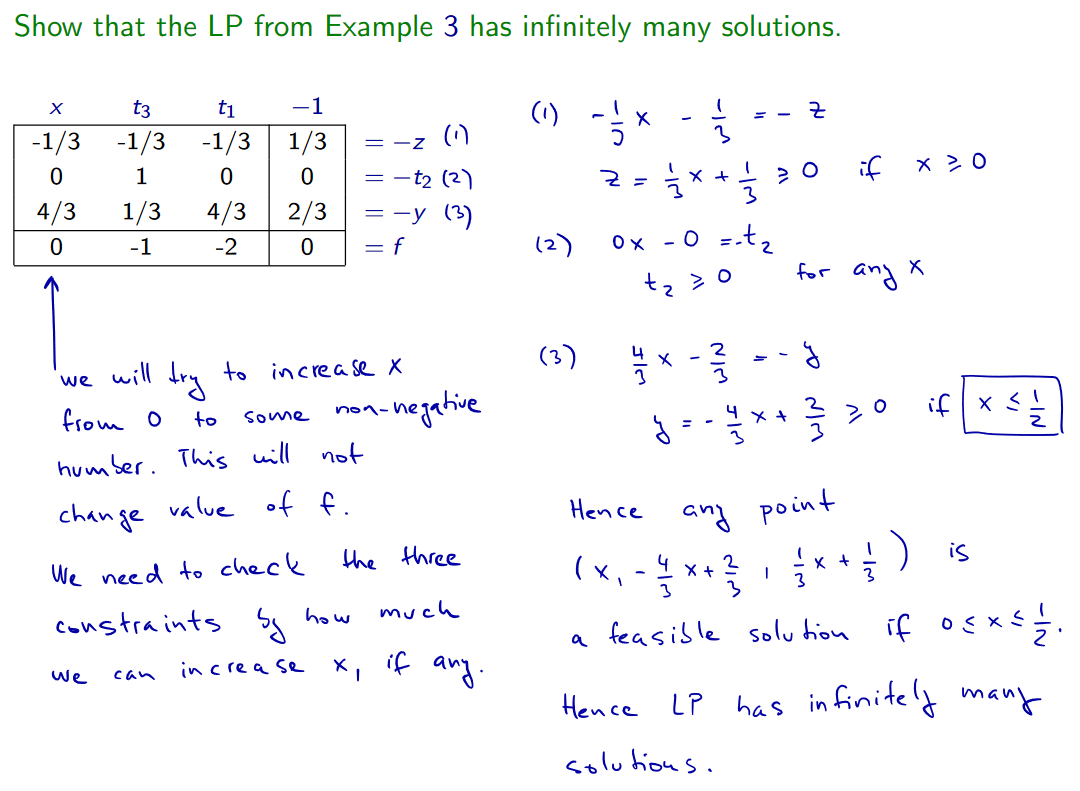 Show that the LP from Example 3 has infinitely many solutions.
x t₃ t₁ −1
-1/3 -1/3 -1/3 1/3 = −z (1)
0 1 0 0 = −t₂ (2)
4/3 1/3 4/3 2/3 = −y (3)
0 -1 -2 0 = f
we will try to increase x
from 0 to some non-negative
number. This will not
change value of f.
We need to check the three
constraints by how much
we can increase x, if any.
(1) -1/3 x - 1/3 = - z
z = 1/3 x + 1/3 ≥ 0 if x ≥ 0
(2) 0x - 0 = -t₂
t₂ ≥ 0 for any x
(3) 4/3 x - 2/3 = - y
y = - 4/3 x + 2/3 ≥ 0 if x ≤ 1/2
Hence any point
(x, - 4/3 x + 2/3 , 1/3 x + 1/3) is
a feasible solution if 0 ≤ x ≤ 1/2.
Hence LP has infinitely many
solutions.